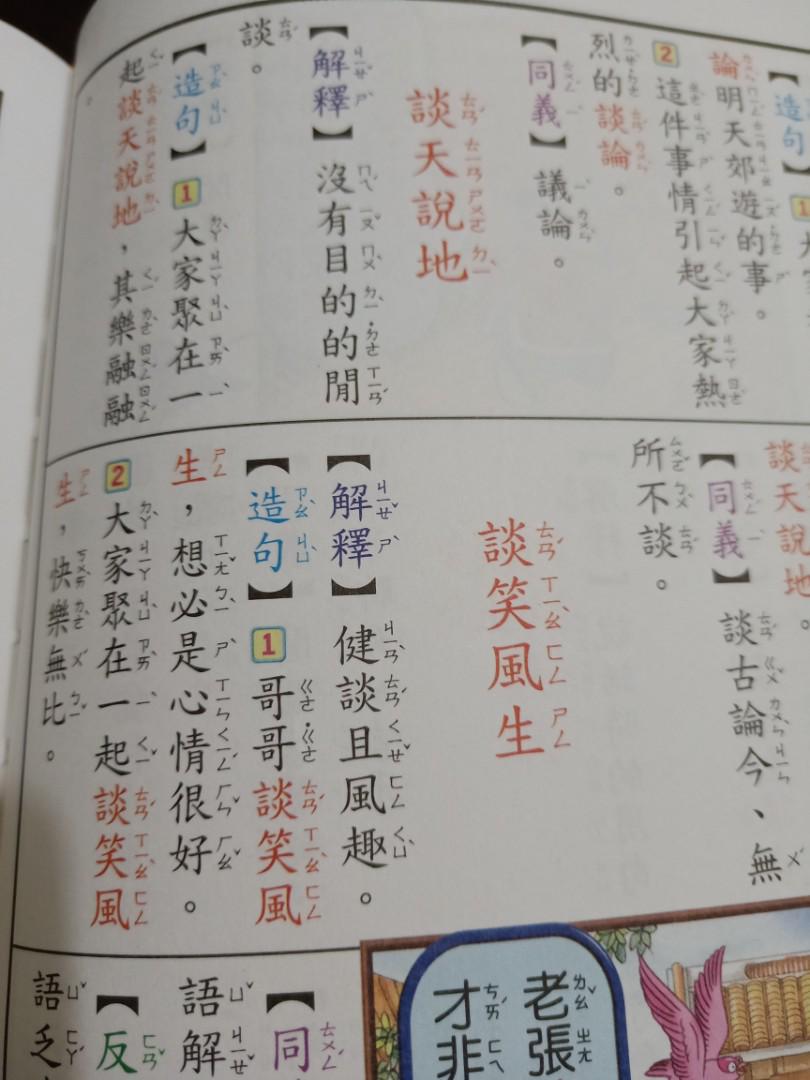 【造句】1
論明天郊遊的事。
2這件事情引起大家熱
烈的談論。
【同義】議論。
談天說地
【解釋】沒有目的的閒
談。
【造句】1大家聚在一
起談天說地，其樂融融
談天說地。
【同義】談古論今、無
所不談。
談笑風生
【解釋】健談且風趣。
【造句】1哥哥談笑風
生，想必是心情很好。
2大家聚在一起談笑風
生，快樂無比。
老張
才非
【同
語解
【反
語乏